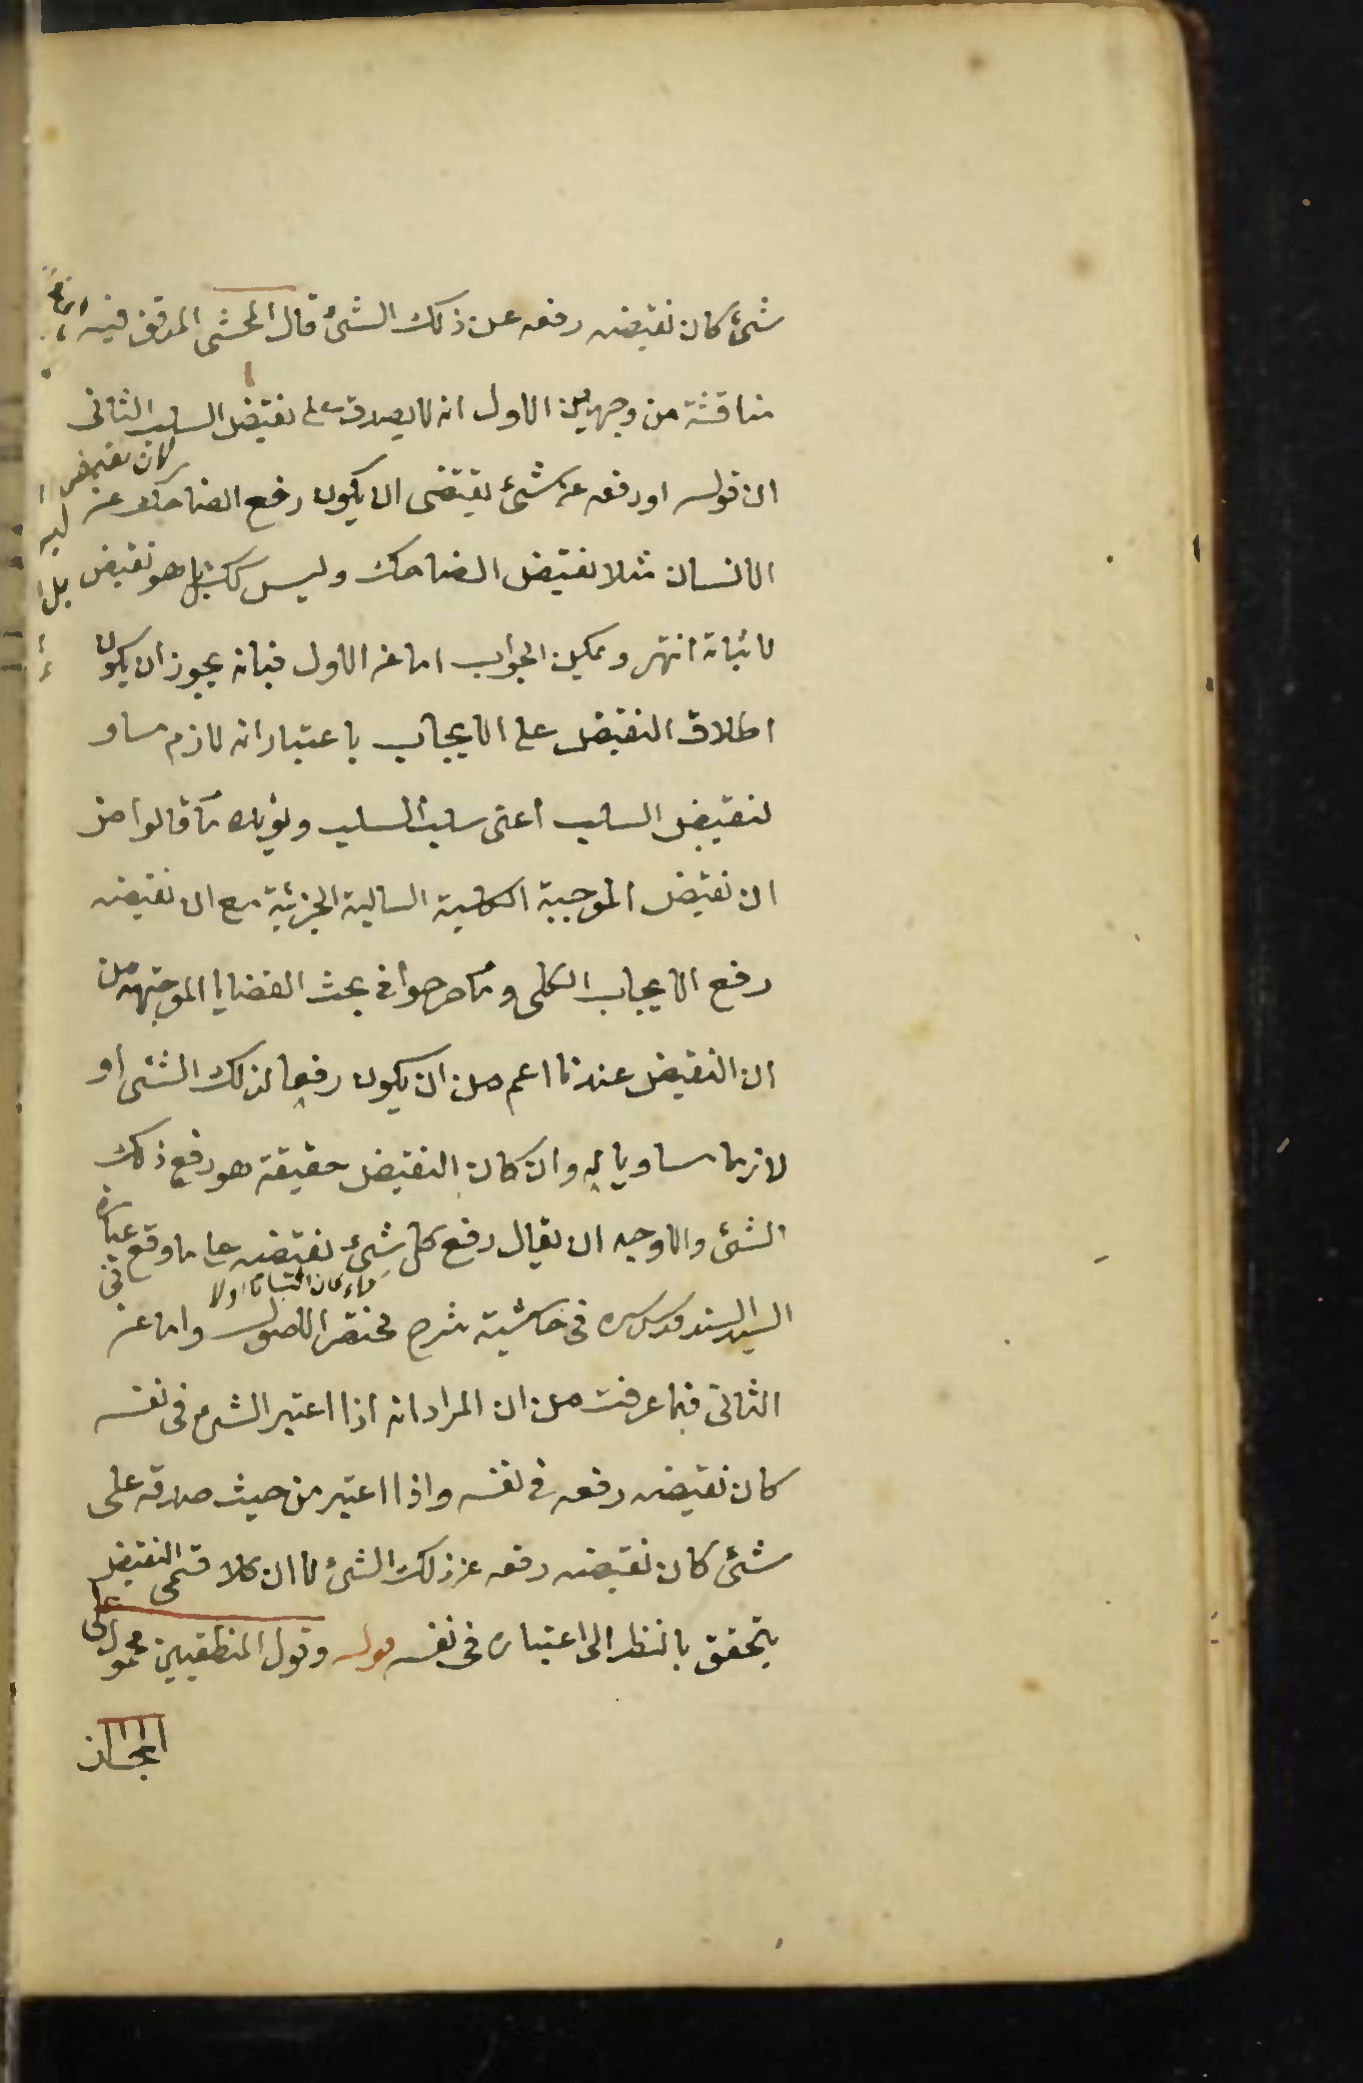 شئ كان نقيضه رفعه عن ذلك الشئ قال المحشى المدقق فيه
مناقشة من وجهين الاول انه لا يصدق على نقيض السلب الثانى
ان قوله او رفعه عن شئ يقتضى ان يكون رفع الضاحك عن
لان نقيض
الانسان مثلا نقيض الضاحك وليس كك بل هو نقيض
لاثباته انتهى ويمكن الجواب اما عن الاول فبانه يجوز ان يكون
اطلاق النقيض على الايجاب باعتبار انه لازم مساو
لنقيض السلب اعنى سلب السلب ويؤيده ما قالوا من
ان نقيض الموجبة الكلية السالبة الجزئية مع ان نقيضه
رفع الايجاب الكلى وما صرحوا فى بحث القضايا الموجهة من
ان النقيض عندنا اعم من ان يكون رفعا لذلك الشئ او
لازما مساويا له وان كان النقيض حقيقة هو رفع ذلك
الشئ والاوجه ان يقال رفع كل شئ نقيضه على ما وقع
عبارة
فى
السيد السند قدس سره فى حاشية شرح مختصر الاصول واما عن
الثانى فبما عرفت من ان المراد انه اذا اعتبر الشئ فى نفسه
كان نقيضه رفعه فى نفسه واذا اعتبر من حيث صدقه على
شئ كان نقيضه رفعه عن ذلك الشئ لا ان كلا قسمى النقيض
يتحقق بالنظر الى اعتباره فى نفسه قوله وقول المنطقيين محمول على
المجاز